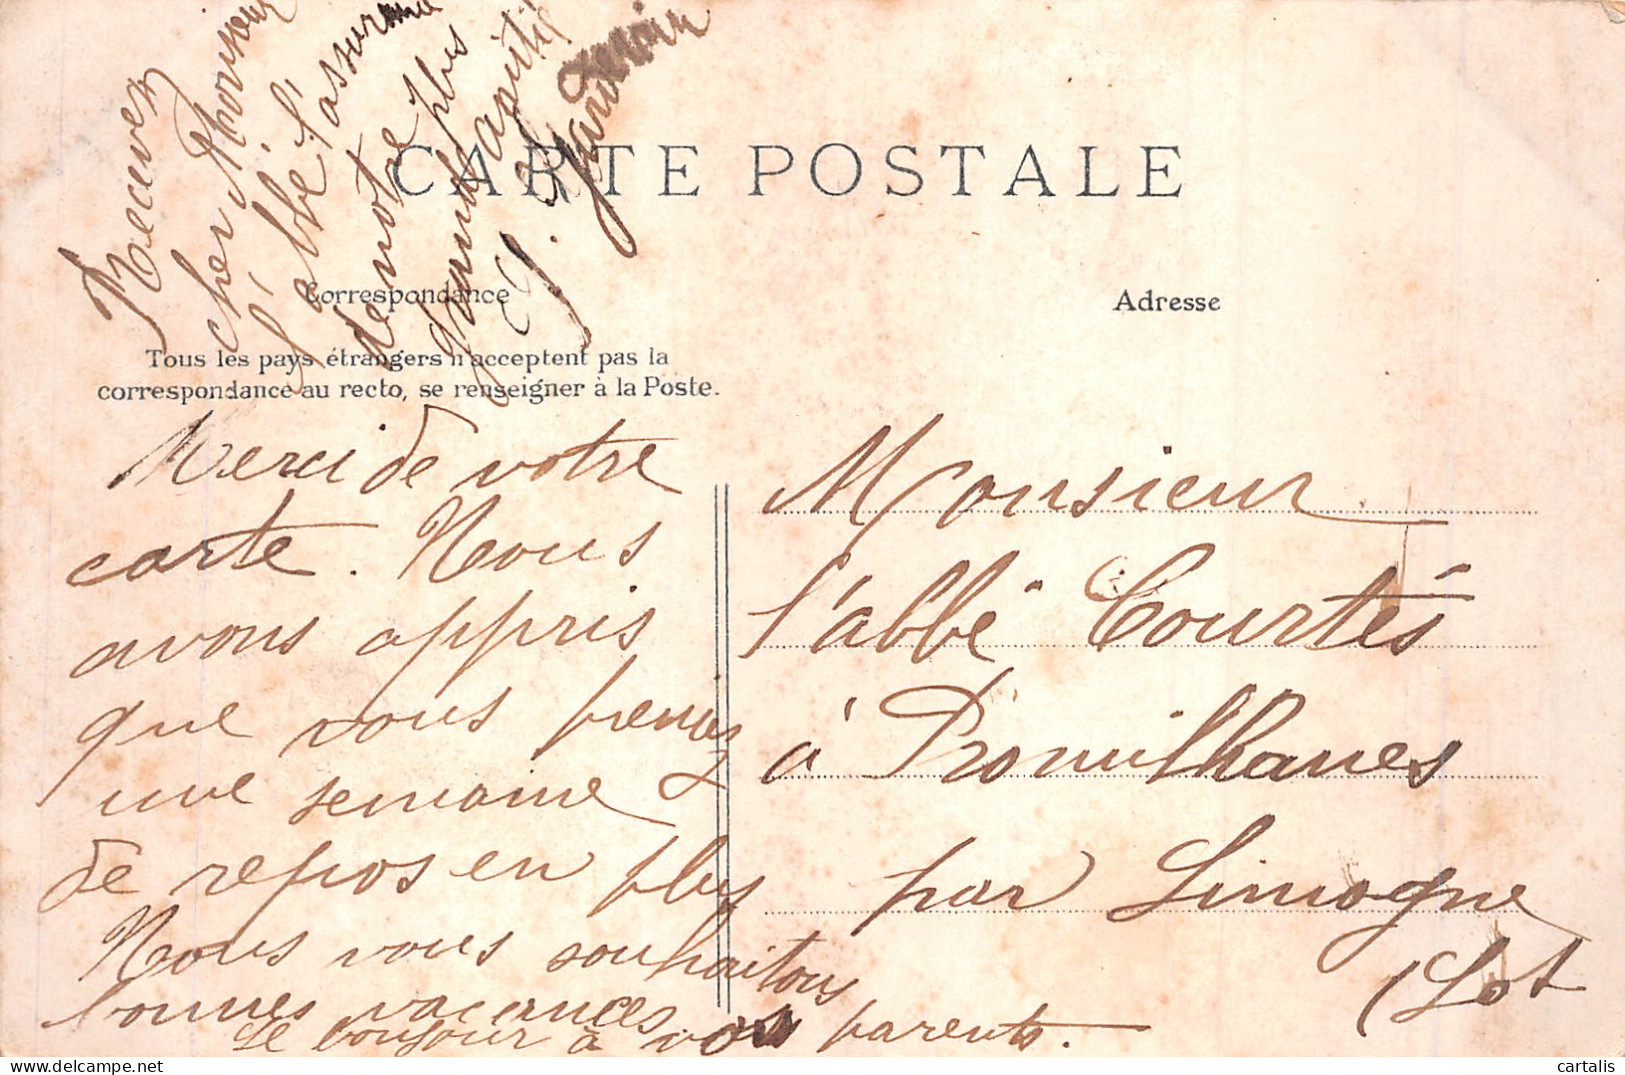 CARTE POSTALE
Correspondance
Adresse
Tous les pays étrangers n'acceptent pas la
correspondance au recto, se renseigner à la Poste.
Merci de votre
carte. Nous
avons appris
que vous preniez
une semaine
de repos en plus
Nous vous souhaitons
bonnes vacances
Le bonjour à vos parents.
Recevez
cher Monsieur
l'abbé l'assurance
de notre plus
grande
J.
Monsieur
l'abbé Courtès
à Promilhanes
par Limogne
(Lot
cartalis